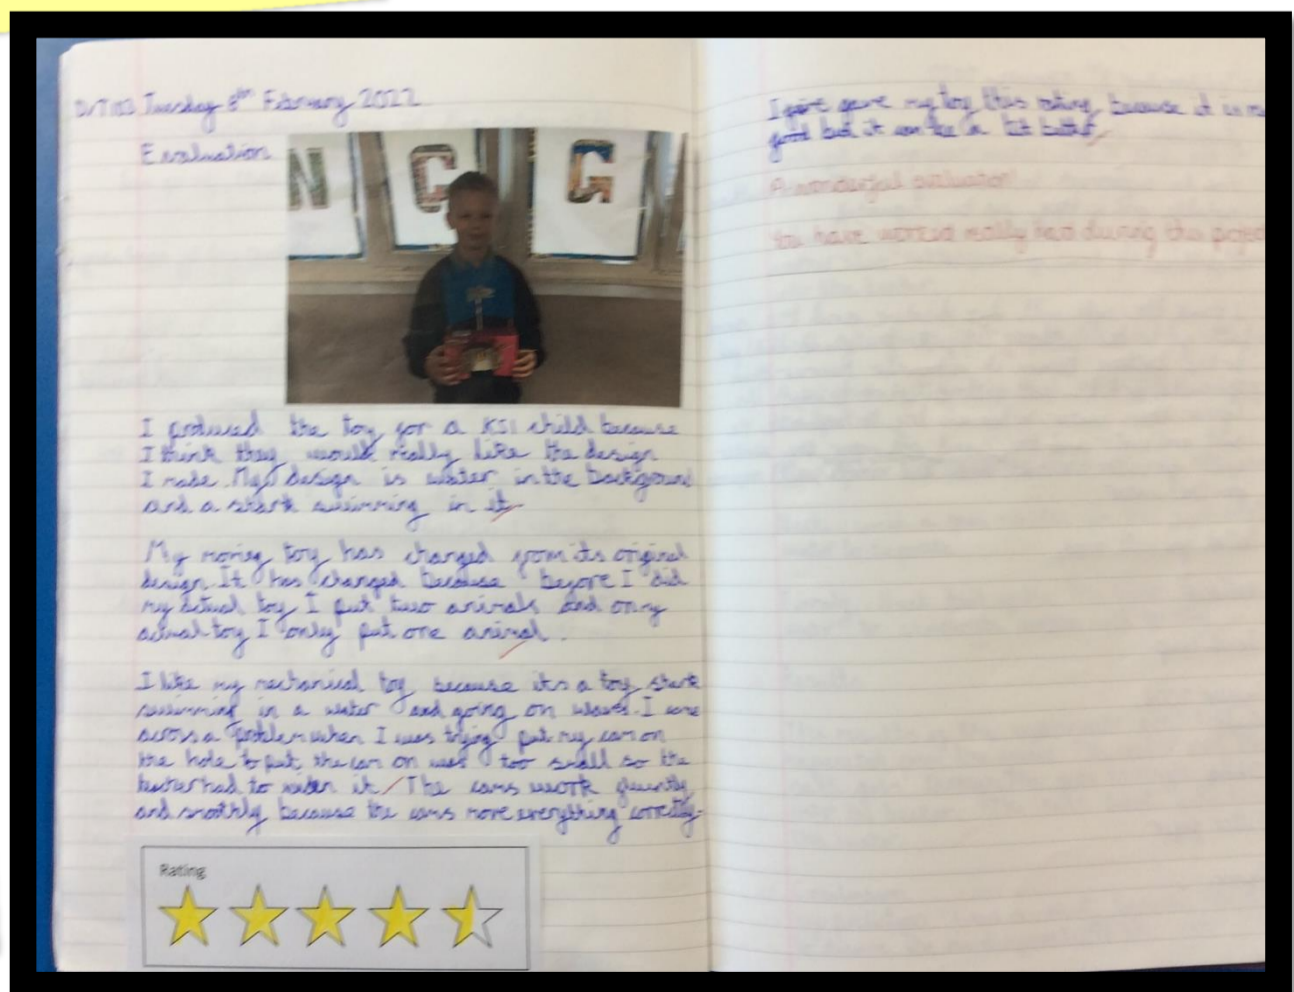 Tuesday 8th February 2022
Evaluation
N C G
I produced the toy for a KS1 child because
I think they would really like the design
I made. My design is water in the background
and a shark swimming in it
My moving toy has changed from its original
design. It has changed because before I did
my actual toy I put two animals and on my
actual toy I only put one animal.
I like my mechanical toy because its a toy shark
swimming in a water and going on waves. I came
across a problem when I was trying put my cam on
the hole to put the cam on was too small so the
teacher had to widen it. The cams work fluently
and smothly because the cams move everything correctly.
Rating
I gave my toy this rating because it is
good but it can be a bit better
A wonderful evaluation!
You have worked really hard during this project